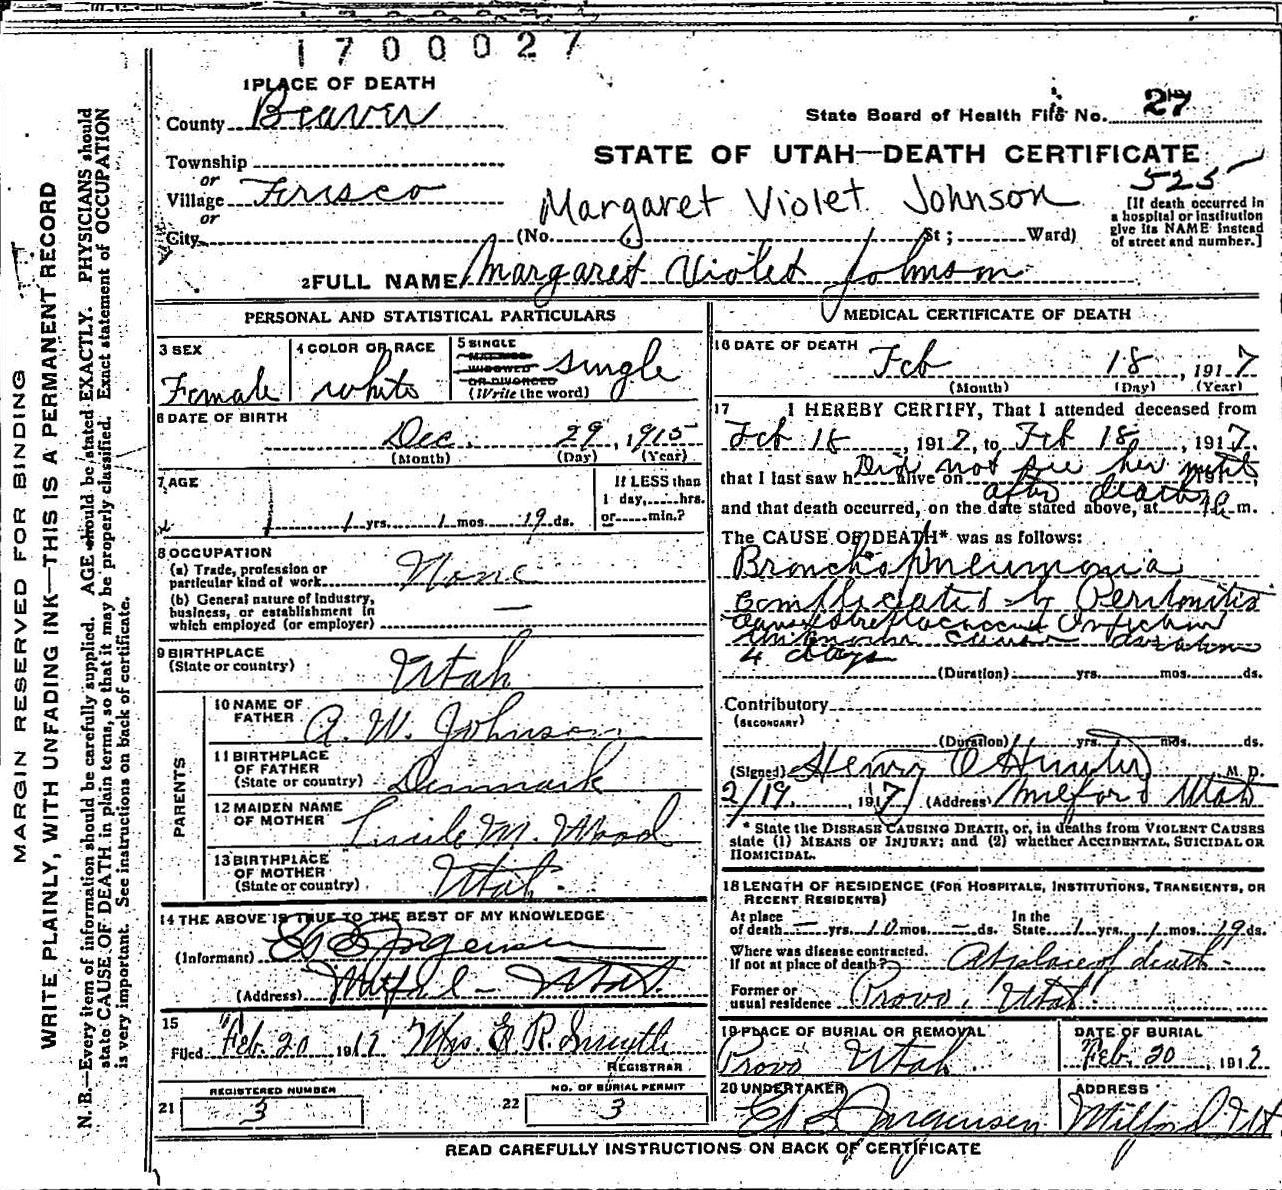 1700027
1 PLACE OF DEATH
County Beaver
State Board of Health File No. 27
Township
STATE OF UTAH—DEATH CERTIFICATE
or
Village Frisco
525
Margaret Violet Johnson
[If death occurred in
a hospital or institution
give its NAME instead
of street and number.]
or
City (No. St; Ward)
2 FULL NAME Margaret Violet Johnson
PERSONAL AND STATISTICAL PARTICULARS
3 SEX
Female
4 COLOR OR RACE
white
5 SINGLE
MARRIED
WIDOWED
OR DIVORCED
(Write the word)
single
6 DATE OF BIRTH
Dec. 29, 1915
(Month) (Day) (Year)
7 AGE
1 yrs. 1 mos. 19 ds.
If LESS than
1 day, hrs.
or min.?
8 OCCUPATION
(a) Trade, profession or
particular kind of work None
(b) General nature of industry,
business, or establishment in
which employed (or employer) —
9 BIRTHPLACE
(State or country) Utah
PARENTS
10 NAME OF
FATHER A. W. Johnson
11 BIRTHPLACE
OF FATHER
(State or country) Denmark
12 MAIDEN NAME
OF MOTHER Lucile M. Wood
13 BIRTHPLACE
OF MOTHER
(State or country) Utah.
14 THE ABOVE IS TRUE TO THE BEST OF MY KNOWLEDGE
(Informant) Jorgensen
(Address) Milford - Utah.
15
Filed Feb. 20 1917 Mrs. E. R. Smyth
REGISTRAR
REGISTERED NUMBER
21 3
NO. OF BURIAL PERMIT
22 3
MEDICAL CERTIFICATE OF DEATH
16 DATE OF DEATH
Feb 18, 1917
(Month) (Day) (Year)
17 I HEREBY CERTIFY, That I attended deceased from
Feb 18, 1917, to Feb 18, 1917,
that I last saw h alive on 191,
Did not see her until
after death
and that death occurred, on the date stated above, at m.
The CAUSE OF DEATH* was as follows:
Broncho pneumonia
complicated by Peritonitis
Streptococcus Infection
unknown cause duration
4 days
(Duration) yrs. mos. ds.
Contributory
(SECONDARY)
(Duration) yrs. mos. ds.
(Signed) Henry O Hunter M. D.
2/19, 1917 (Address) Milford Utah
* State the DISEASE CAUSING DEATH, or, in deaths from VIOLENT CAUSES
state (1) MEANS OF INJURY; and (2) whether ACCIDENTAL, SUICIDAL OR
HOMICIDAL.
18 LENGTH OF RESIDENCE (FOR HOSPITALS, INSTITUTIONS, TRANSIENTS, OR
RECENT RESIDENTS)
At place
of death — yrs. 10 mos. — ds.
In the
State 1 yrs. 1 mos. 19 ds.
Where was disease contracted,
If not at place of death? At place of death -
Former or
usual residence Provo, Utah.
19 PLACE OF BURIAL OR REMOVAL
Provo Utah
DATE OF BURIAL
Feb. 20, 1917
20 UNDERTAKER
Jorgensen
ADDRESS
Milford Ut
READ CAREFULLY INSTRUCTIONS ON BACK OF CERTIFICATE
MARGIN RESERVED FOR BINDING
WRITE PLAINLY, WITH UNFADING INK—THIS IS A PERMANENT RECORD
N. B.—Every item of information should be carefully supplied. AGE should be stated EXACTLY. PHYSICIANS should
state CAUSE OF DEATH in plain terms, so that it may be properly classified. Exact statement of OCCUPATION
is very important. See instructions on back of certificate.